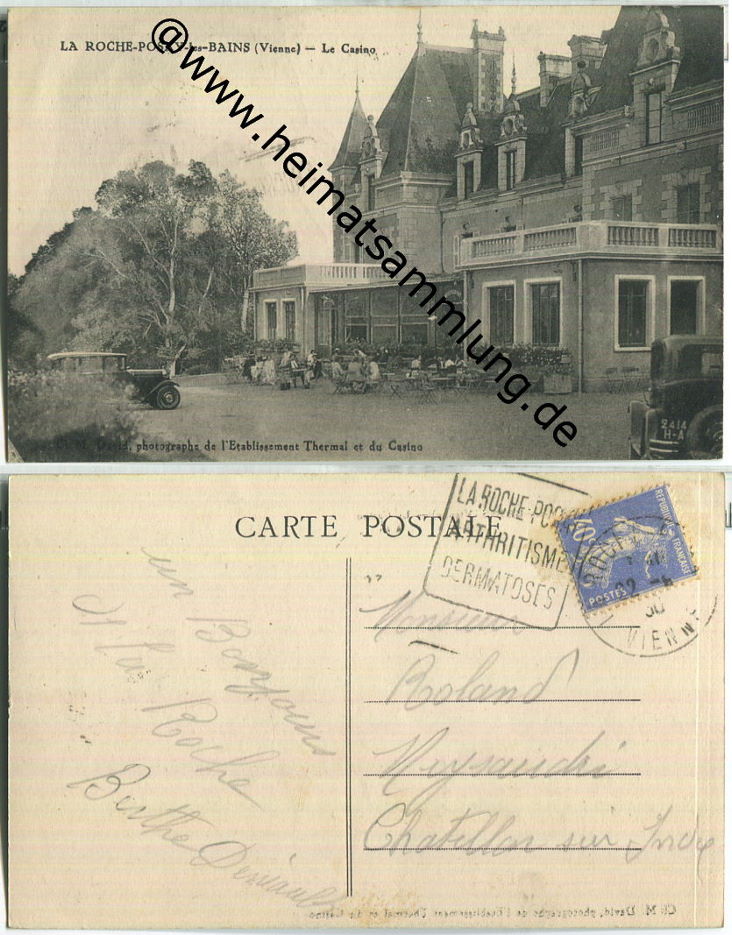 LA ROCHE-POSAY-les-BAINS (Vienne) — Le Casino
@www.heimatsammlung.de
2414
H-A
Ch. M. David, photographe de l'Etablissement Thermal et du Casino
CARTE POSTALE
LA ROCHE-POSAY
ARTHRITISME
DERMATOSES
REPUBLIQUE FRANÇAISE
40c
POSTES
ROCHE
22 -6
30
VIENNE
un Bonjour
de La Roche
Berthe
Monsieur
Roland
Chatillon sur Indre
Ch. M. David, photographe de l'Etablissement Thermal et du Casino